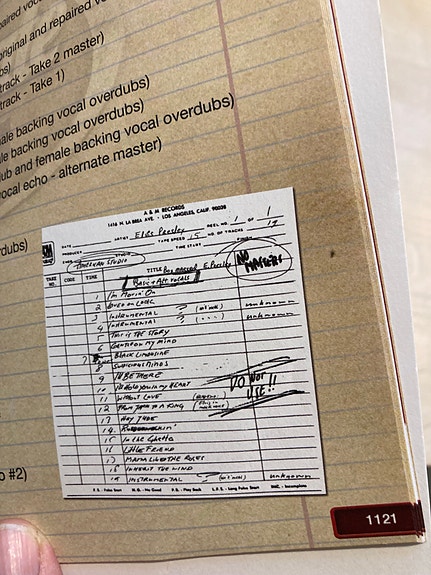 paired voc
original and repaired v
bs)
track - Take 2 master)
track - Take 1)
ale backing vocal overdubs)
le backing vocal overdubs)
ub and female backing vocal overdubs)
ocal echo - alternate master)
dubs)
o #2)
A & M RECORDS
1416 N. LA BREA AVE. - LOS ANGELES, CALIF. 90028
DATE
ARTIST Elvis Presley REEL NO. 1 OF 1
TAPE SPEED 15 NO. OF TRACKS
TIME START
AMERICAN STUDIO
NO MASTERS
TAKE NO. CODE TIME TITLE E. Presley
Basic + Alt. vocals
1 I'm Movin' On
2
3 Instrumental ? unknown
4 Instrumental ? unknown
5 This is the Story
6 Gentle on my mind
7 Black Limousine
8 Suspicious Minds
9 I'll Be There
10 I'll Hold you in my Heart
DO NOT USE!!
11 Without Love
12 From to a King
13 Hey Jude
14
15 In the Ghetto
16 Little Friend
17 Mama Liked the Roses
18 Inherit the wind
19 Instrumental ? unknown
F.S. - False Start N.G. - No Good P.B. - Play Back L.F.S. - Long False Start INC. - Incomplete
1121